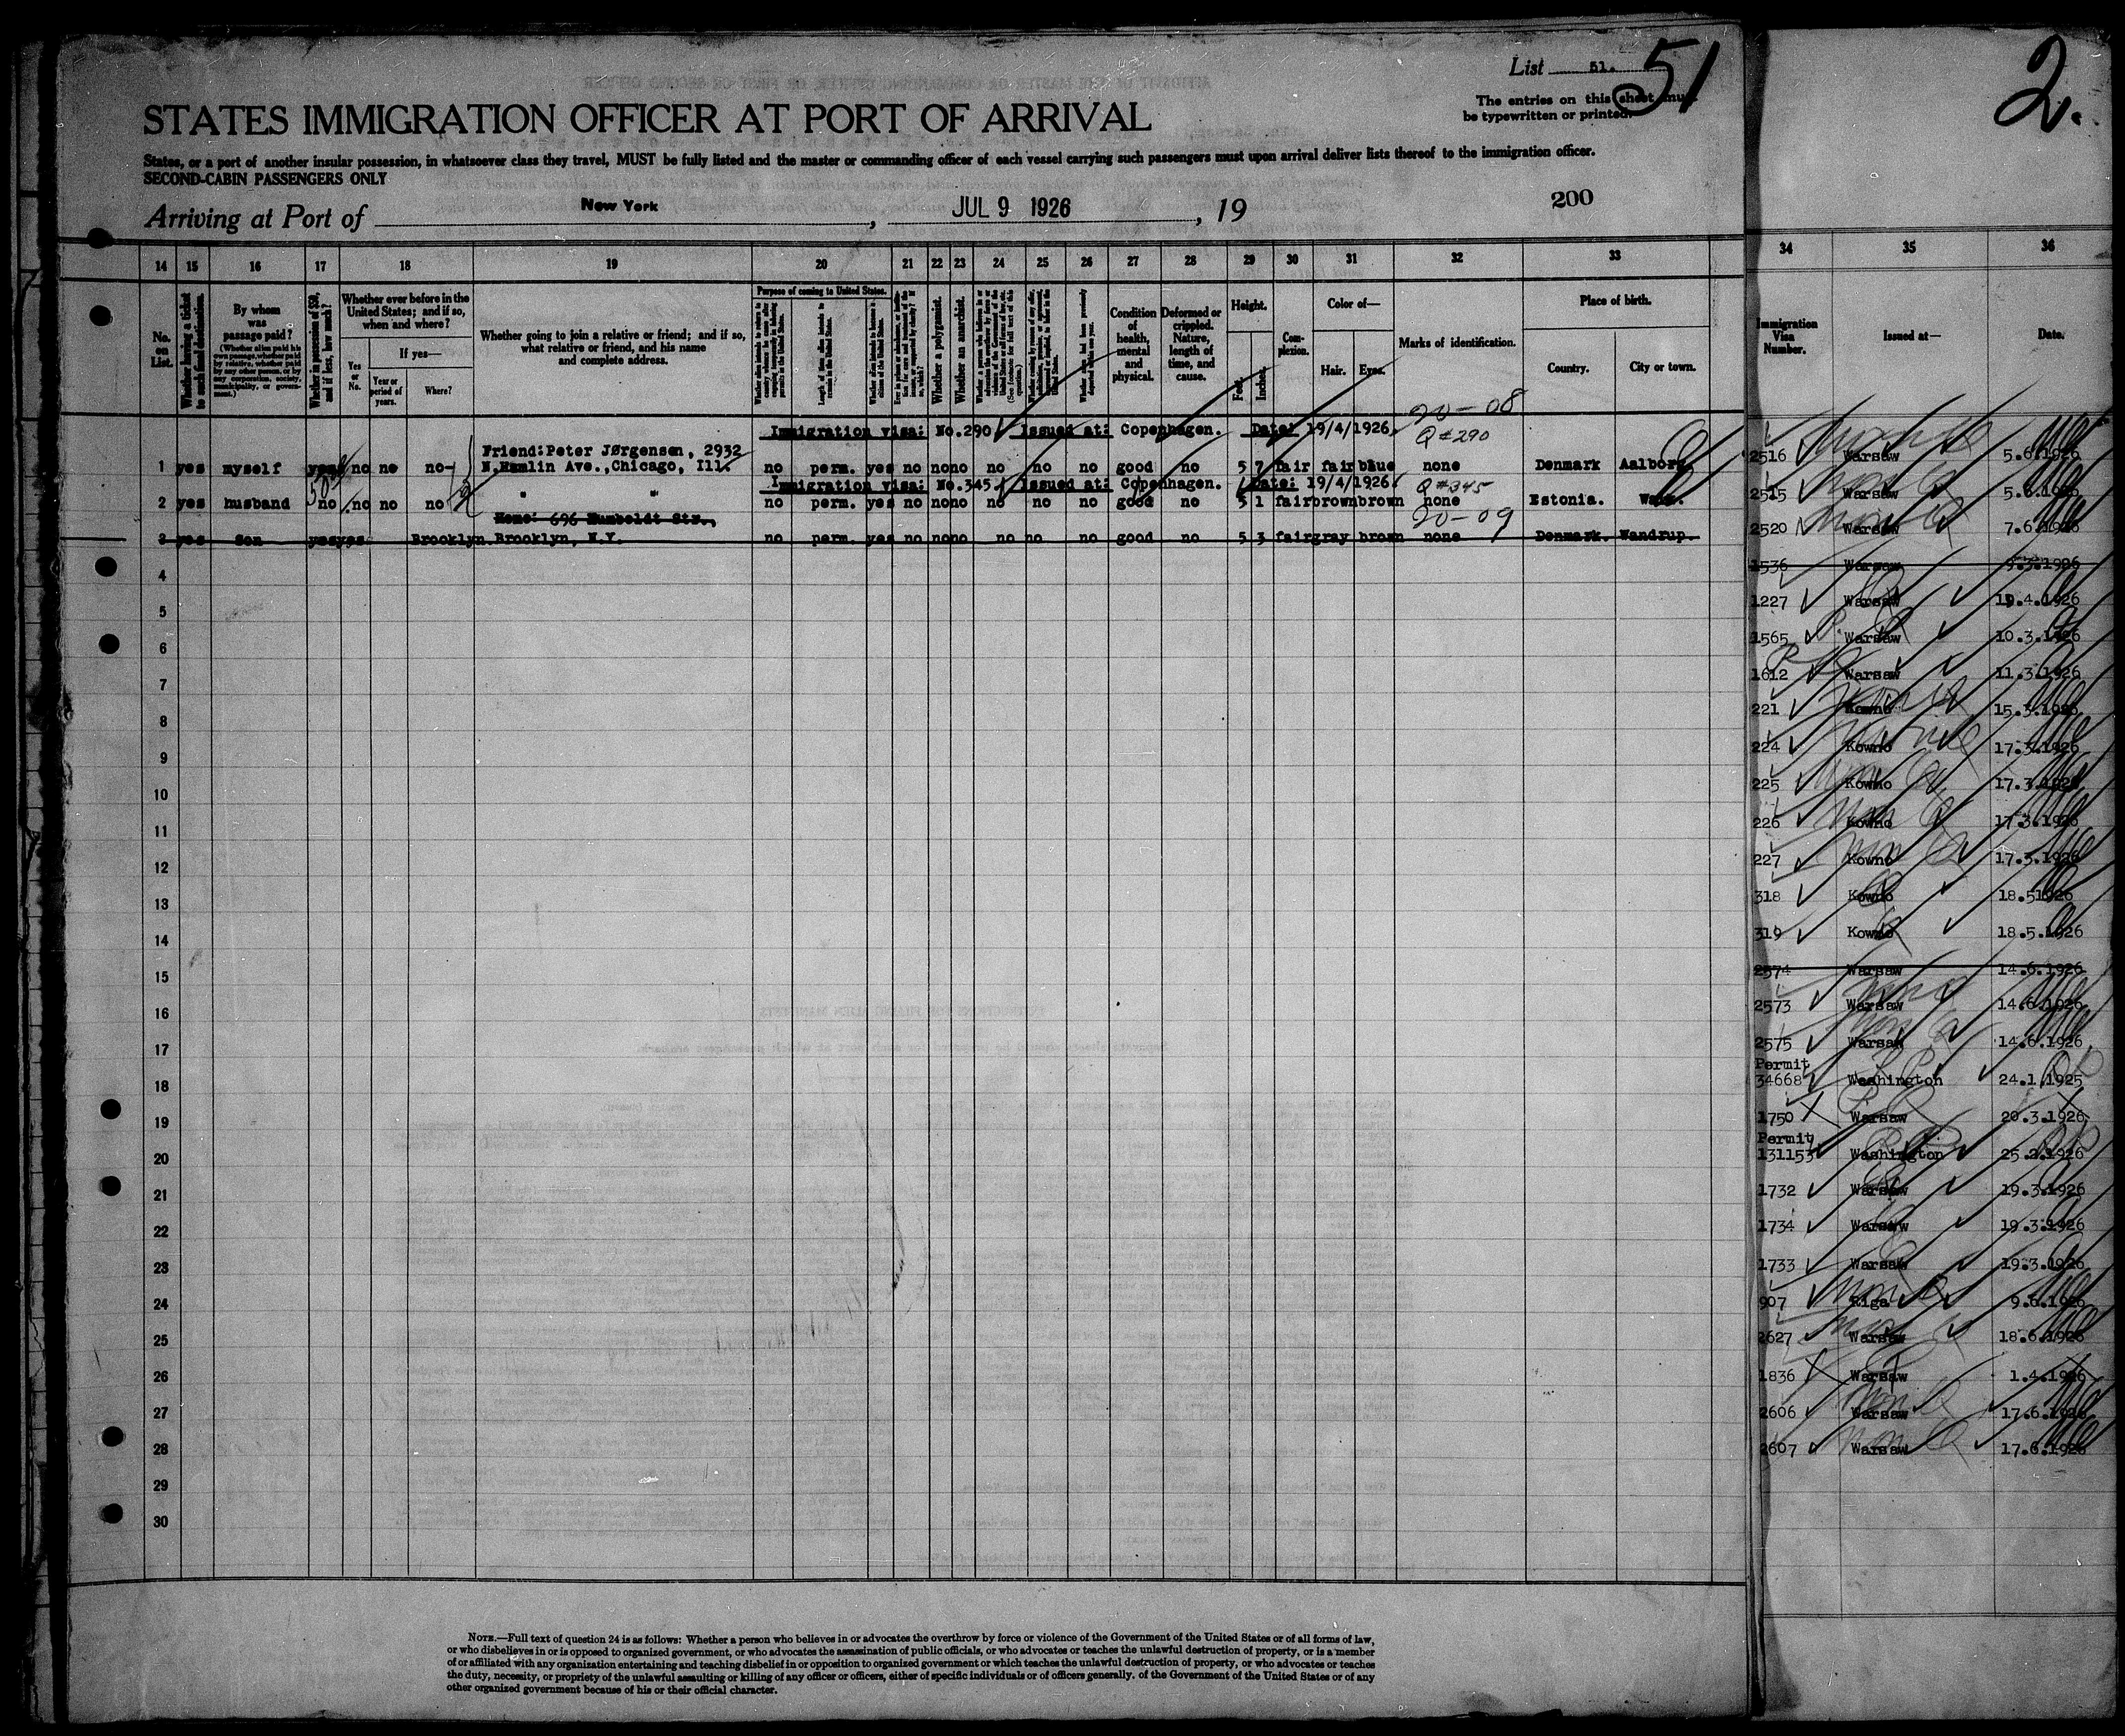 List 51. 51
The entries on this sheet must
be typewritten or printed.
2.
STATES IMMIGRATION OFFICER AT PORT OF ARRIVAL
States, or a port of another insular possession, in whatsoever class they travel, MUST be fully listed and the master or commanding officer of each vessel carrying such passengers must upon arrival deliver lists thereof to the immigration officer.
SECOND-CABIN PASSENGERS ONLY
200
Arriving at Port of New York, JUL 9 1926, 19
14 15 16 17 18 19 20 21 22 23 24 25 26 27 28 29 30 31 32 33
No. on List.
Whether having a ticket to such final destination.
By whom was passage paid?
(Whether alien paid his own passage, whether paid by relative, whether paid by any other person, or by any corporation, society, municipality, or government.)
Whether in possession of $50, and if less, how much?
Whether ever before in the United States; and if so, when and where?
Yes or No.
If yes—
Year or period of years.
Where?
Whether going to join a relative or friend; and if so, what relative or friend, and his name and complete address.
Purpose of coming to United States.
Length of time alien intends to remain in the United States.
Whether a polygamist.
Whether an anarchist.
Condition of health, mental and physical.
Deformed or crippled. Nature, length of time, and cause.
Height.
Feet. Inches.
Complexion.
Color of—
Hair. Eyes.
Marks of identification.
Place of birth.
Country. City or town.
20-08
Immigration visa: No.290 Issued at: Copenhagen. Date: 19/4/1926. Q#290
Friend:Peter Jørgensen, 2932
1 yes myself yes no no no N.Hamlin Ave.,Chicago, Ill. no perm. yes no no no no no no good no 5 7 fair fair blue none Denmark Aalborg.
Immigration visa: No.345 Issued at: Copenhagen. Date: 19/4/1926. Q#345
2 yes husband no no no no " " no perm. yes no no no no no no good no 5 1 fair brown brown none Estonia.
20-09
Home: 696 Humboldt Str.,
3 yes Son yes yes Brooklyn. Brooklyn, N.Y. no perm. yes no no no no no no good no 5 3 fair gray brown none Denmark. Wandrup.
4
5
6
7
8
9
10
11
12
13
14
15
16
17
18
19
20
21
22
23
24
25
26
27
28
29
30
NOTE.—Full text of question 24 is as follows: Whether a person who believes in or advocates the overthrow by force or violence of the Government of the United States or of all forms of law,
or who disbelieves in or is opposed to organized government, or who advocates the assassination of public officials, or who advocates or teaches the unlawful destruction of property, or is a member
of or affiliated with any organization entertaining and teaching disbelief in or opposition to organized government or which teaches the unlawful destruction of property, or who advocates or teaches
the duty, necessity, or propriety of the unlawful assaulting or killing of any officer or officers, either of specific individuals or of officers generally. of the Government of the United States or of any
other organized government because of his or their official character.
34 35 36
Immigration Visa Number.
Issued at—
Date.
2516 Warsaw 5.6.1926
2515 Warsaw 5.6.1926
2520 Warsaw 7.6.1926
1536 Warsaw 9.3.1926
1227 Warsaw 19.4.1926
1565 Warsaw 10.3.1926
1612 Warsaw 11.3.1926
221 Kowno 15.3.1926
224 Kowno 17.3.1926
225 Kowno 17.3.1926
226 Kowno 17.3.1926
227 Kowno 17.3.1926
318 Kowno 18.51926
319 Kowno 18.5.1926
2574 Warsaw 14.6.1926
2573 Warsaw 14.6.1926
2575 Warsaw 14.6.1926
Permit
34668 Washington 24.1.1925
1750 Warsaw 20.3.1926
Permit
131153 Washington 25.2.1926
1732 Warsaw 19.3.1926
1734 Warsaw 19.3.1926
1733 Warsaw 19.3.1926
907 Riga 9.6.1926
2627 Warsaw 18.6.1926
1836 Warsaw 1.4.1926
2606 Warsaw 17.6.1926
2607 Warsaw 17.6.1926